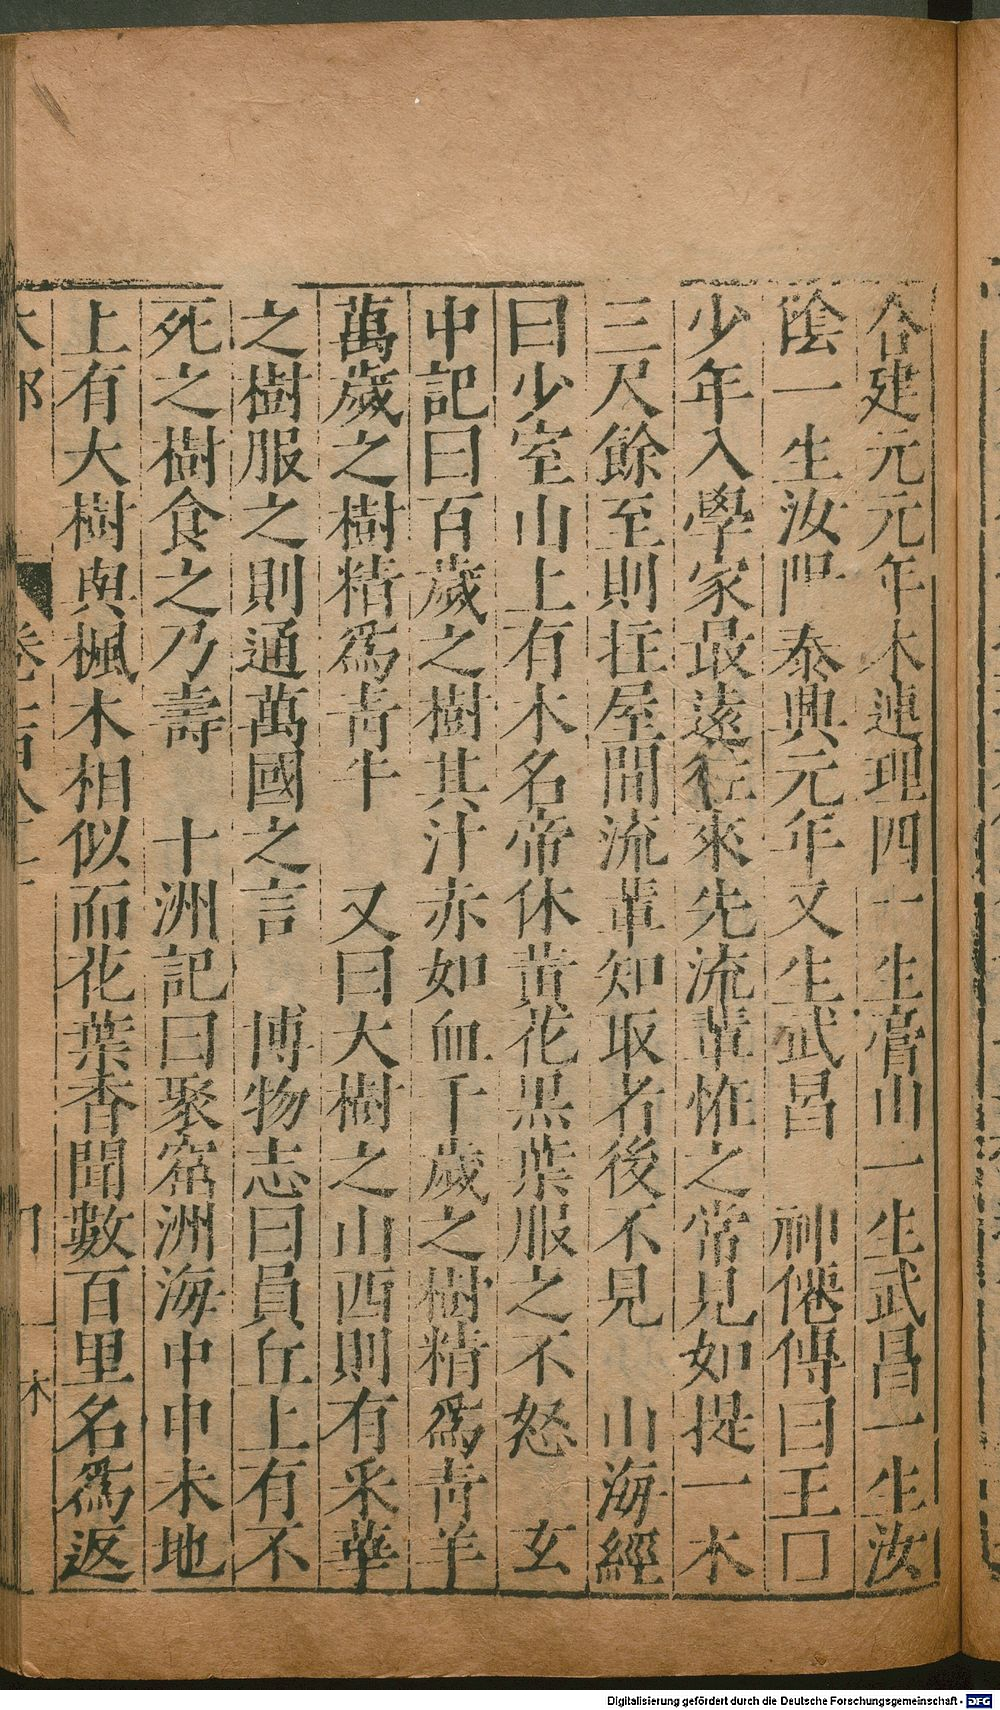 谷建元元年木連理四一生霍山一生武昌一生汝
陰一生汝陽泰興元年又生武昌　神僊傳曰王口
少年入學家最遠往來先流輩恠之常見如提一木
三尺餘至則拄屋間流輩知取者後不見　山海經
曰少室山上有木名帝休黄花黒葉服之不怒　玄
中記曰百歲之樹其汁赤如血千歲之樹精爲青羊
萬歲之樹精爲青牛　又曰大樹之山西則有采華
之樹服之則通萬國之言　博物志曰員丘上有不
死之樹食之乃壽　十洲記曰聚窟洲海中申未地
上有大樹與楓木相似而花葉香聞數百里名爲返
木部
Digitalisierung gefördert durch die Deutsche Forschungsgemeinschaft - DFG